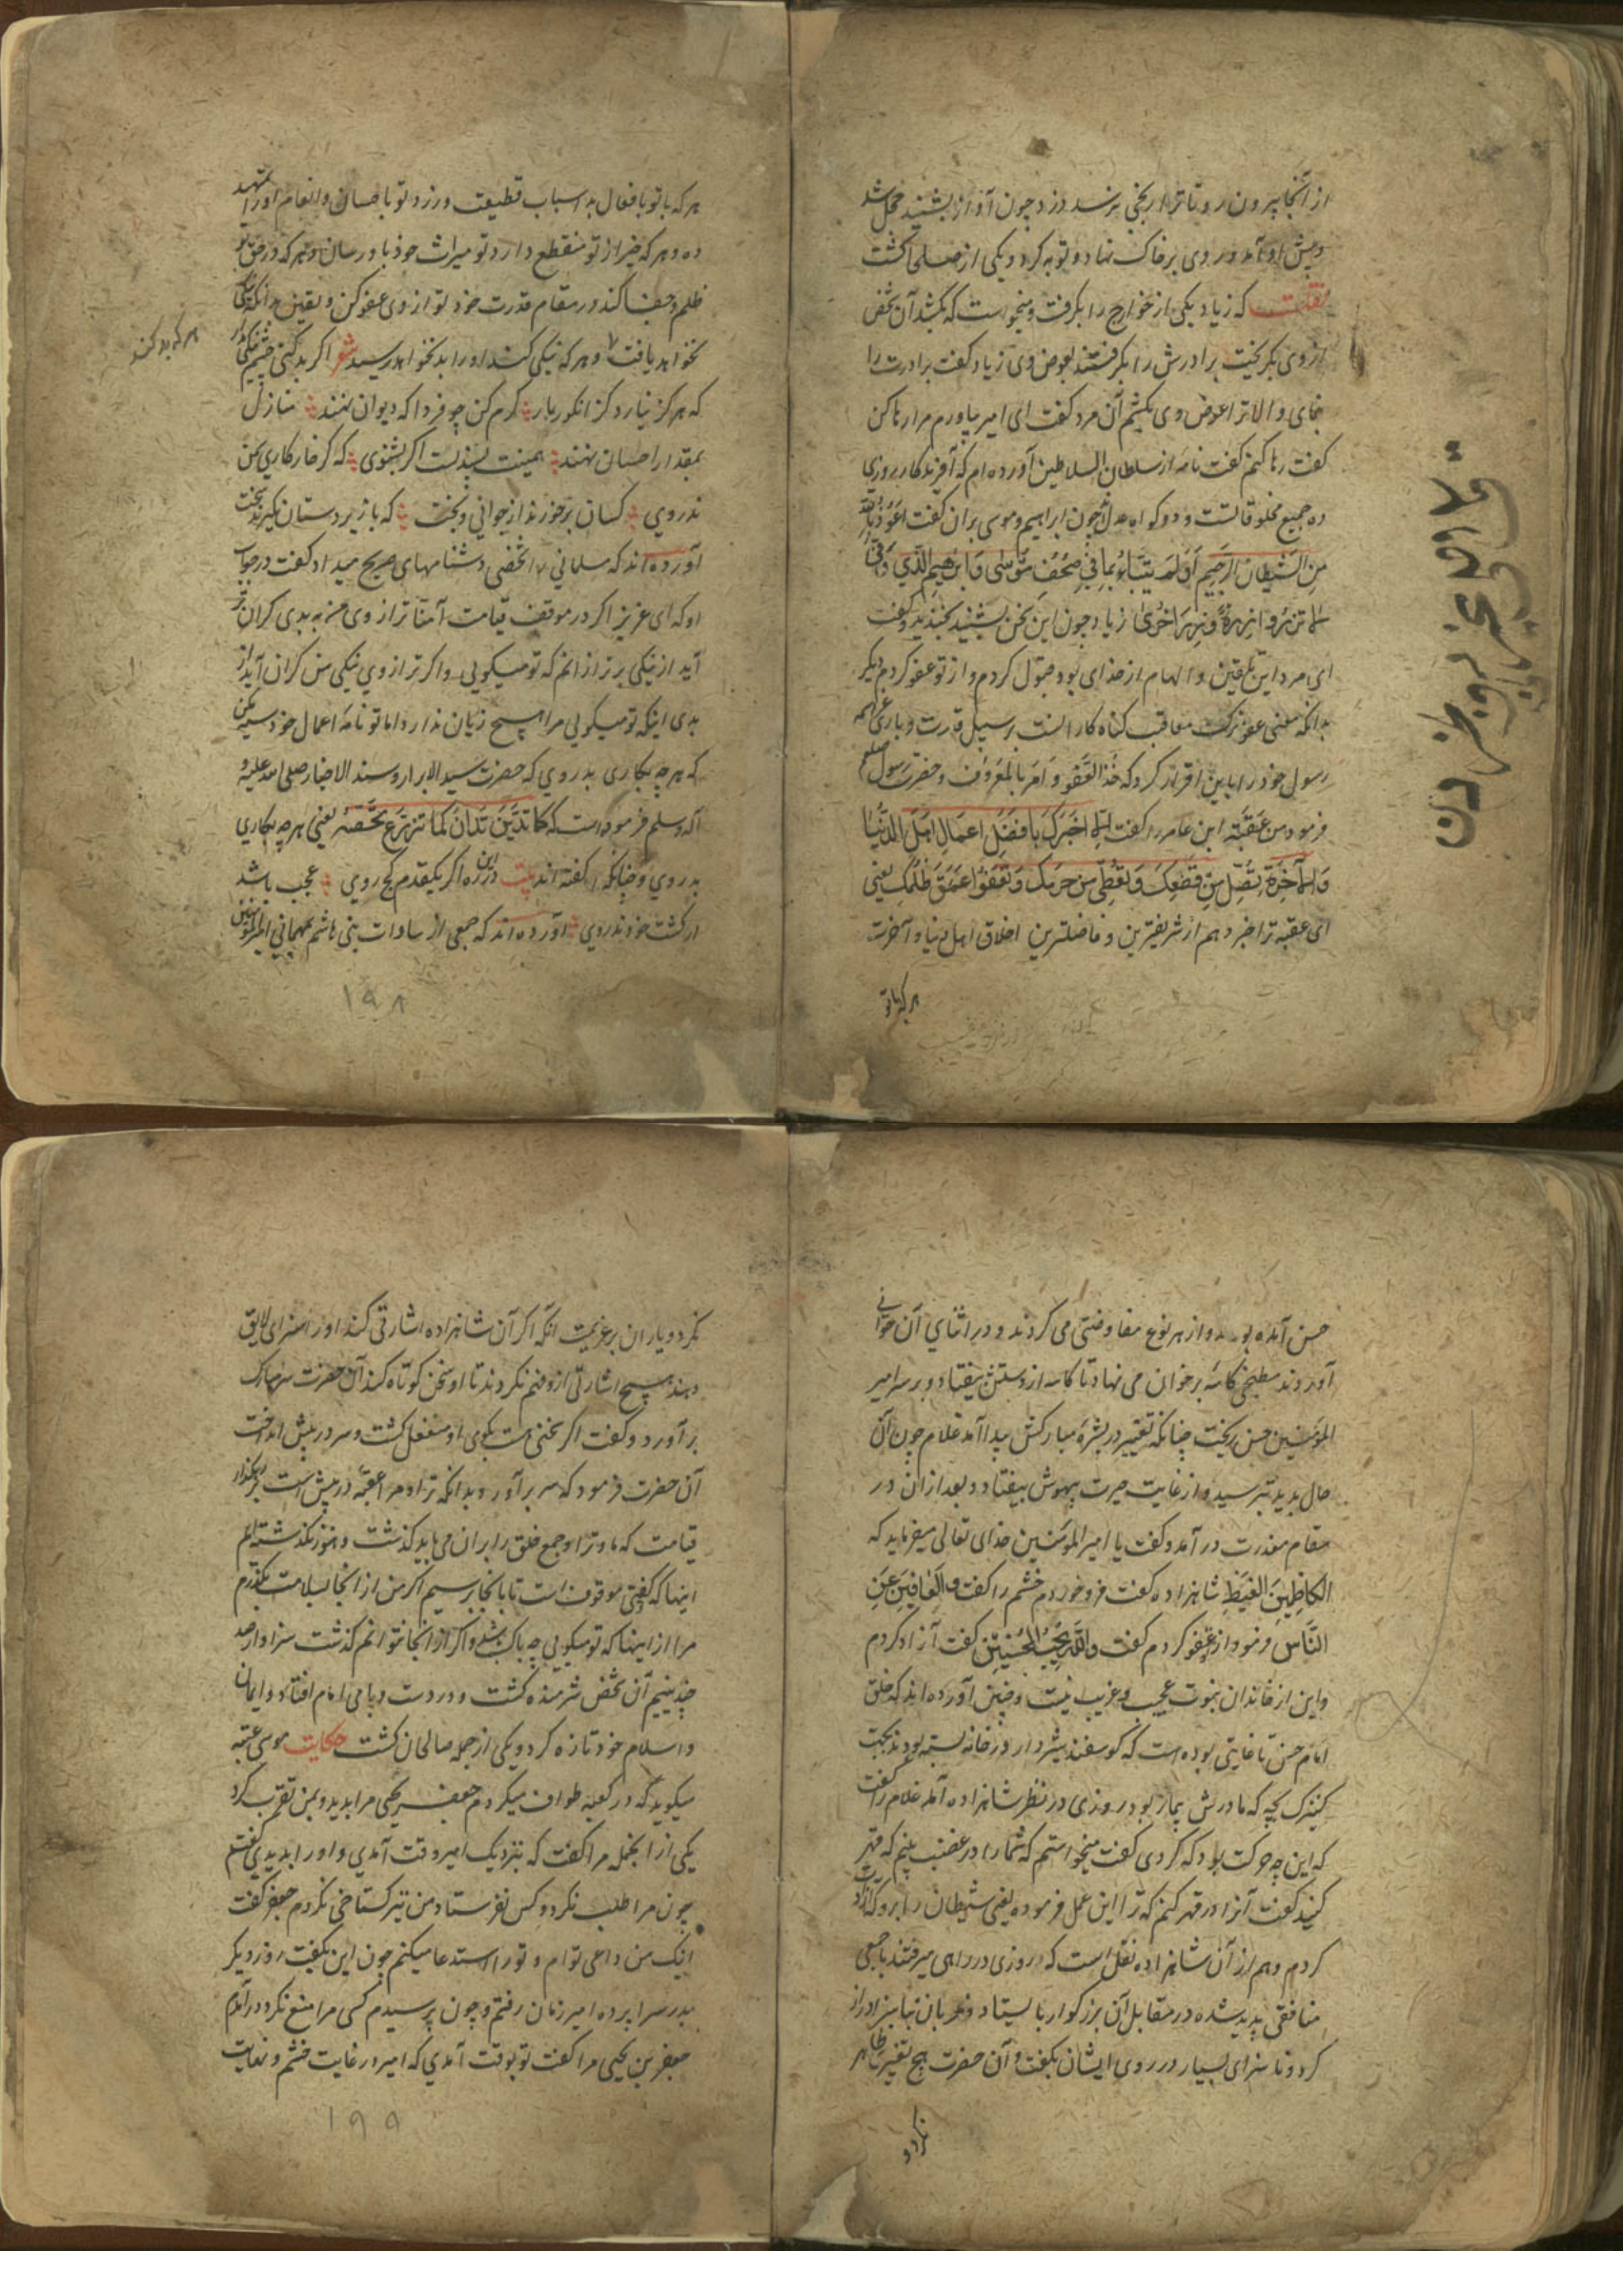 از آنجا بیرون رو تا ترا رنجی نرسد دزد چون آواز بشنید خجل شد
و پیش او آمد و روی بر خاک نهاد و توبه کرد و یکی از صلحا گشت
نقلست که زیاد یکی از خوارج را بگرفت و میخواست که بکشد آن شخص
از وی بگریخت برادرش را بگرفتند بعوض وی زیاد گفت برادرت را
بنمای والا ترا عوض وی بکشم آن مرد گفت ای امیر بیاورم مرا رها کن
گفت رها کنم گفت نامه از سلطان السلاطین آورده ام که آفریدگار روزی
ده جمیع مخلوقاتست و دو گواه عدل چون ابراهیم و موسی بران گفت اعوذ بالله
من الشیطان الرجیم اولم ینباء بما فی صحف موسی و ابرهیم الذی وفی
الا تزروا ازرة وزر اخری زیاد چون این سخن بشنید بخندید و گفت
ای مرد این تلقین و الهام از خدای بود قبول کردم و از تو عفو کردم دیگر
بدانکه معنی عفو ترک معاقب گناه کارانست بر سبیل قدرت و باری عز اسمه
رسول خود را باین اقرار کرد که خذ العفو و امر بالمعروف و حضرت رسول صلعم
فرمود من عقبه ابن عامر را گفت الا اخبرک بافضل اعمال اهل الدنیا
والآخرة تصل من قطعک و تعطی من حرمک و تعفوا عمن ظلمک یعنی
ای عقبه ترا خبر دهم از شریفترین و فاضلترین اخلاق اهل دنیا و آخرت
هر که با تو
هر که با تو با فعال بد اسباب قطیعت ورزد تو باحسان و انعام او را
ده و هر که خیر از تو منقطع دارد تو میراث خود باو رسان و هر که در حق تو
ظلم و جفا کند در مقام قدرت خود تو از وی عفو کن و یقین بدانکه
نخواهد یافت و هر که نیکی کند او را بد نخواهد رسید شعر اگر بد کنی چشم نیکی مدار
هر که بد کند
که هرگز نیارد گز انگور بار کرم کن چو فردا که دیوان نهند منازل
بمقدار احسان نهند همینت پسندست اگر بشنوی که گر خار کاری سمن
ندروی کسان برخورند از جوانی و بخت که با زیردستان نگیرند سخت
آورده اند که سلمانی را شخصی دشنامهای صریح میداد گفت در جواب
او که ای عزیز اگر در موقف قیامت ترازوی من به بدی گران تر
آید از نیکی بتر ازانم که تو میگویی و اگر ترازوی نیکی من گران آید از
بدی اینکه تو میگویی مرا هیچ زیان ندارد اما تو نامه اعمال خود سیه مکن
که هر چه بکاری بدروی که حضرت سید الابرار و سند الاخیار صلی الله علیه و
آله و سلم فرموده است که کما تدین تدان کما تزرع تحصد یعنی هر چه بکاری
بدروی و چنانکه گفته اند بیت در این ره اگر یکقدم کج روی عجب باشد
ار کشت خود ندروی آورده اند که جمعی از سادات بنی هاشم بمهمانی امیرالمؤمنین
۱۹۸
حسن آمده بودند و از هر نوع مفاوضتی می کردند و در اثنای آن خوانی
آوردند مطبخی کاسه بر خوان می نهاد تا کاسه از دستش بیفتاد و بر سر امیر
المؤمنین حسن ریخت چنانکه تغییر در بشره مبارکش پیدا آمد غلام چون آن
حال بدید بترسید و از غایت حیرت بیهوش بیفتاد و بعد از ان در
مقام معذرت در آمد و گفت یا امیر المؤمنین خدای تعالی میفرماید که
الکاظمین الغیظ شاهزاده گفت فرو خوردم خشم را گفت والعافین عن
الناس فرمود از تو عفو کردم گفت والله یحب المحسنین گفت آزاد کردم
و این از خاندان نبوت عجیب و غریب نیست و چنین آورده اند که خلق
امام حسن تا غایتی بوده است که گوسفند شیردار در خانه بسته بودند بجهت
کنیزک بچه که مادرش بیمار بود روزی در نظر شاهزاده آمد غلام را گفت
که این چه حرکت بود که کردی گفت میخواستم که شما را در غضب بینم که قهر
کنید گفت آنرا در قهر کنم که ترا این عمل فرموده یعنی شیطان را برو که آزادت
کردم و هم از آن شاهزاده نقل است که روزی در راهی میرفتند با جمعی
منافقی پدید شده در مقابل آن بزرگوار بایستاد و زبان بناسزا دراز
کرد و ناسزای بسیار در روی ایشان بگفت و آن حضرت هیچ تغییر ظاهر
نکرد و
نکرد و یاران بر عزیمت آنکه اگر آن شاهزاده اشارتی کند او را سزای لایق
دهند هیچ اشارتی ازو فهم نکردند تا او سخن کوتاه کند آن حضرت سر مبارک
بر آورد و گفت اگر سخنی هست بگوی او منفعل گشت و سر در پیش انداخت
آن حضرت فرمود که سر برآور و بدانکه ترا و مرا عقبه در پیش است
قیامت که ما و ترا و جمع خلق را بران می باید گذشت و هنوز نگذشته ایم
اینها که گفتی موقوف است تا بانجا برسیم اگر من از انجا بسلامت بگذرم
مرا از اینها که تو میگویی چه باک باشد و اگر از انجا نتوانم گذشت سزاوار صد
چندینیم آن شخص شرمنده گشت و در دست و پای امام افتاد و ایمان
و اسلام خود تازه کرد و یکی از جمله صالحان گشت حکایت موسی عتبه
میگوید که در کعبه طواف میکردم جعفر یحیی مرا بدید و بمن تقرب کرد
یکی از انجمله مرا گفت که بنزدیک امیر وقت آمدی و او را بدیدی گفتم
چون مرا طلب نکرد و کس نفرستاد من نیز گستاخی نکردم جعفر گفت
اینک من داعی توام و تو را استدعا میکنم چون این بگفت روز دیگر
بدر سراپرده امیر زمان رفتم و چون برسیدم کسی مرا منع نکرد در آمدم
جعفر بن یحیی مرا گفت تو بوقت آمدی که امیر در غایت خشم و نهایت
۱۹۹